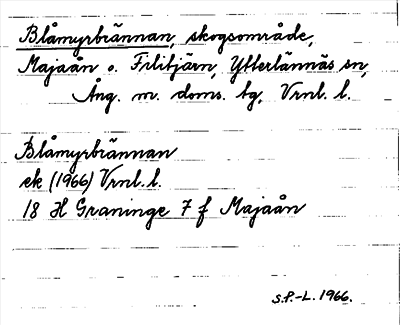 Blåmyrbrännan, skogsområde,
Majaån o. Frlitjärn, Ytterlännäs sn,
Ång. m. doms. tg, Vrnl. l.
Blåmyrbrännan
ek (1966) Vrnl. l.
18 H Graninge 7 f Majaån
S.P.-L. 1966.